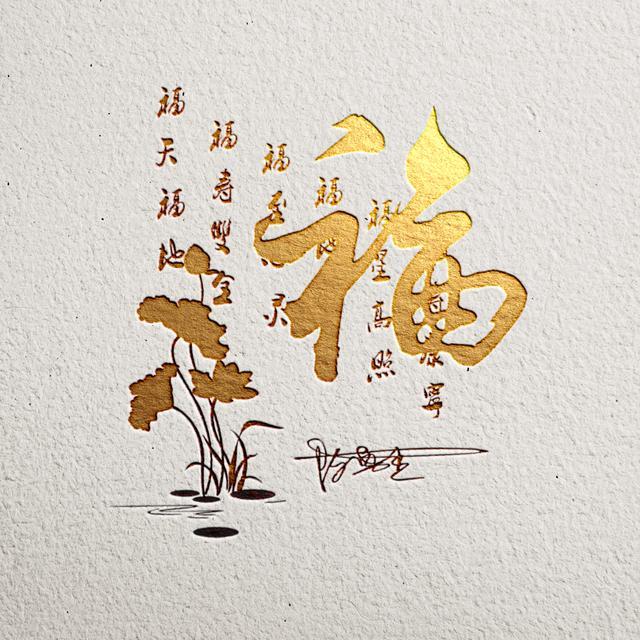 福
福天福地
福寿雙全
福至心灵
福
福星高照
康寧